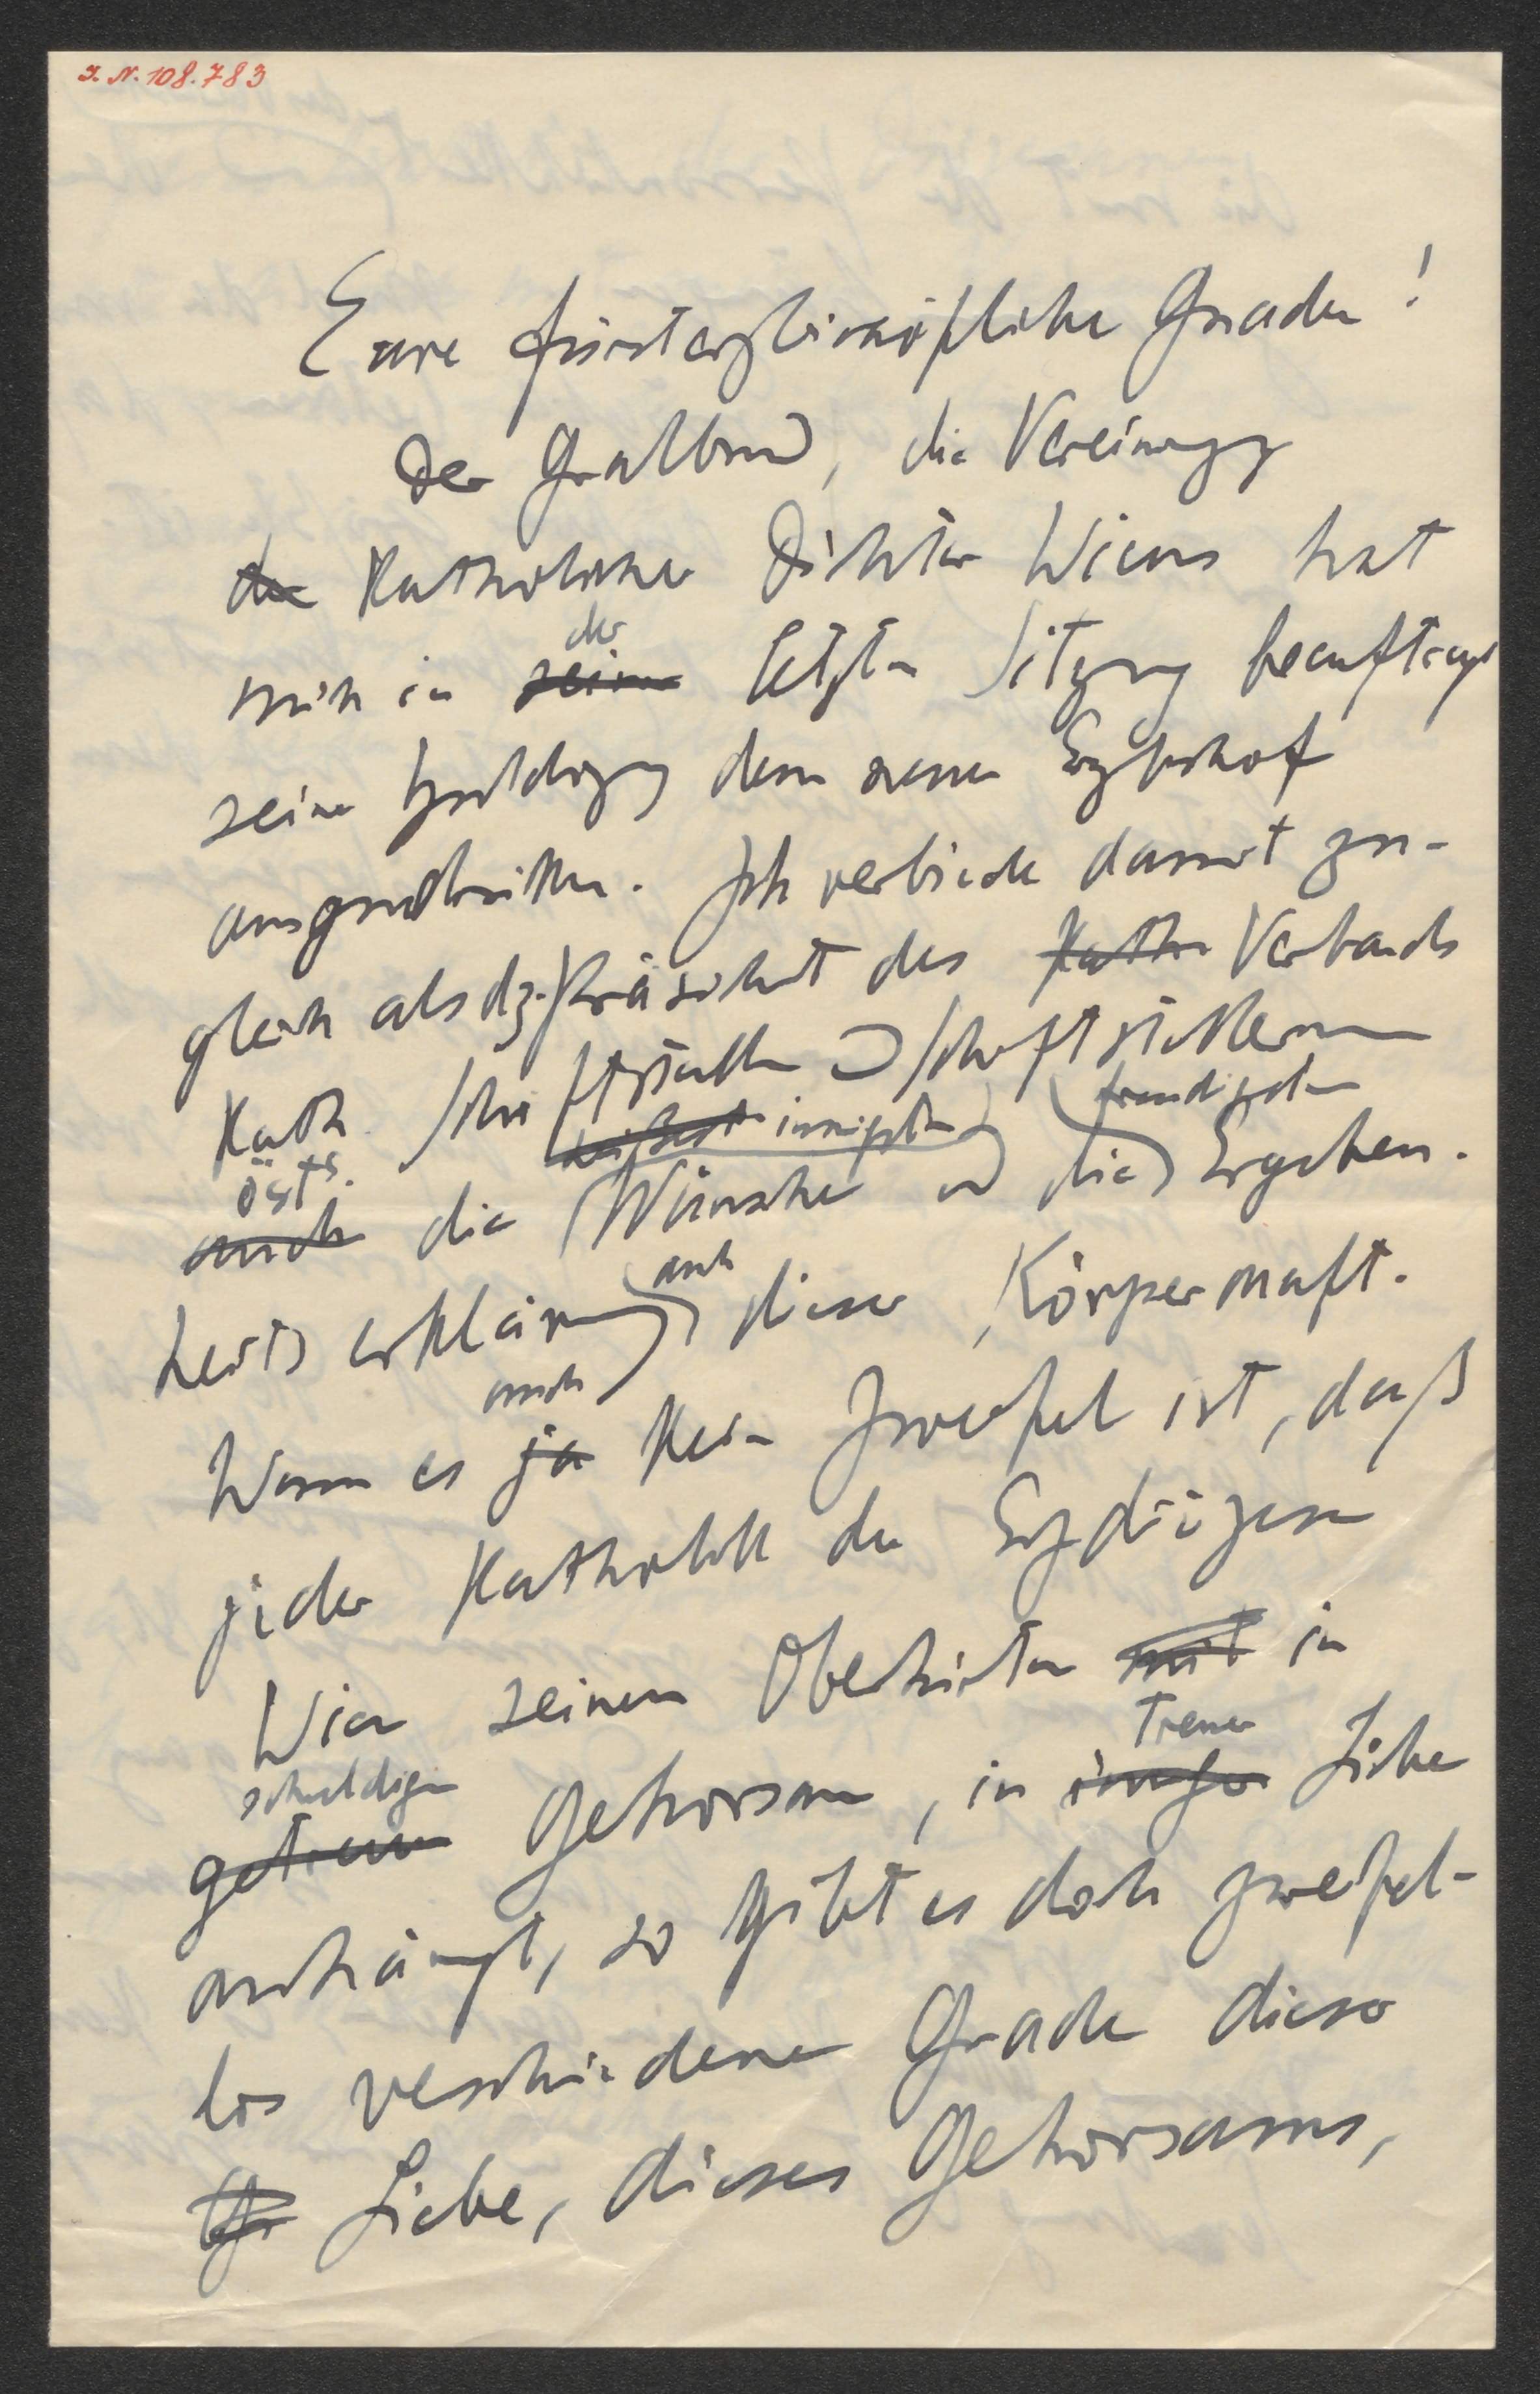 I. N. 108.783
Eure fürsterzbischöfliche Gnaden!
Der Gralbund, die Vereinigung
der Katholischen Dichter Wiens hat
der
mich in seiner letzten Sitzung beauftragt
seine Huldigung dem neuen Erzbischof
auszudrücken. Ich verbinde damit zu-
gleich als dz. Präsident des Kath. Verbands
Kath. Schriftsteller u Schriftstellerinnen
östr. innigsten freudigsten
auch die Wünsche u die Ergeben-
heits erklärung auch dieser Körperschaft.
auch
Wenn es ja kein Zweifel ist, daß
jeder Katholik der Erzdiözese
Wien seinem Oberhirten mit in
schuldigem treuer
getreuem Gehorsam, in inniger Liebe
anhängt, so gibt es doch zweifel-
los verschiedene Grade dieser
Liebe, dieses Gehorsams,